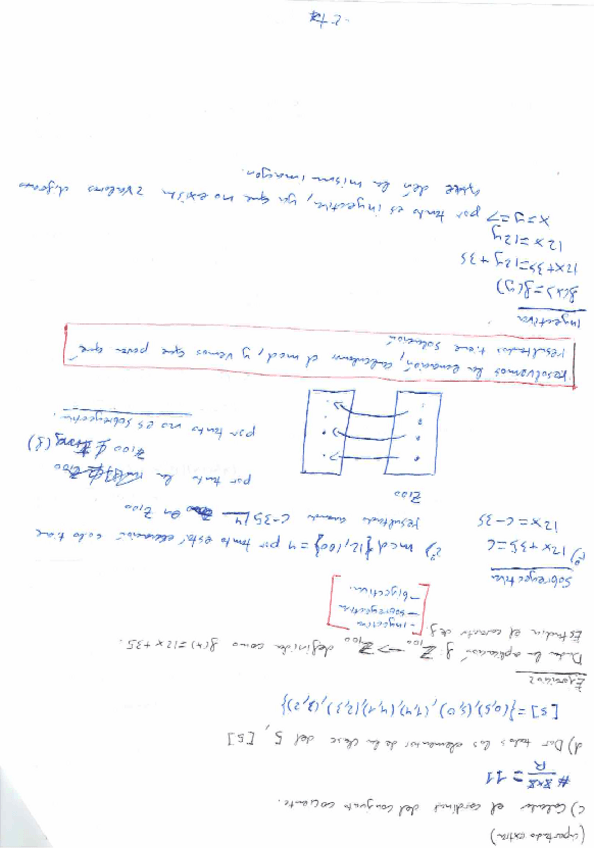 (apartado extra)
c) Calcula el cardinal del conjunto cociente.
# 8x8/R = 11
d) Dar todos los elementos de la clase del 5, [5]
[5] = {(0,5),(5,0),(1,4),(4,1),(2,3),(3,2)}
Ejercicio 2
Dada la aplicación f: Z100 → Z100 definida como f(x)=12x+35.
Estudia el caracter de f.
- inyectiva
- sobreyectiva
- biyectiva.
Sobreyectiva
1º) 12x+35=C
12x = C-35
2º) mcd {12,100} = 4 por tanto está ecuación solo tiene
resultado cuando C-35/4 en Z100
por tanto la
Z100 (f)
por tanto no es sobreyectiva.
Z100
resolvemos la ecuación, calculamos el mcd, y vemos que para qué
resultados tiene solución
Inyectiva
f(x) = f(y)
12x+35=12y+35
12x=12y
x=y => por tanto es inyectiva, ya que no existen 2 valores diferentes
que den la misma imagen.